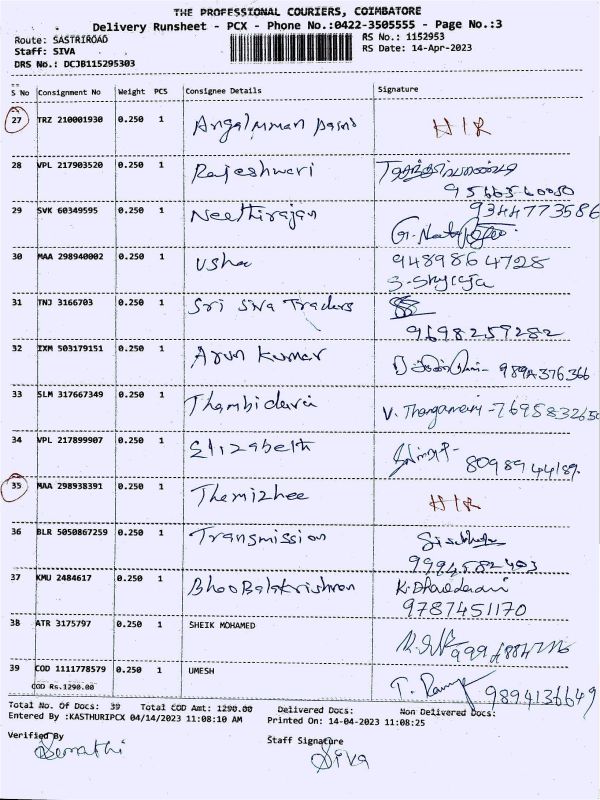 THE PROFESSIONAL COURIERS, COIMBATORE
Delivery Runsheet - PCX - Phone No.:0422-3505555 - Page No.:3
Route: SASTRIROAD RS No.: 1152953
Staff: SIVA RS Date: 14-Apr-2023
DRS No.: DCJB115295303
S No Consignment No Weight PCS Consignee Details Signature
27 TRZ 210001930 0.250 1 Angalamman H/R
28 VPL 217903520 0.250 1 Rajeshwari
9566560050
29 SVK 60349595 0.250 1 Neethirajan 9344773586
30 MAA 298940002 0.250 1 Usha 9489864728
S. Shylaja
31 TNJ 3166703 0.250 1 Sri Siva Traders
9698259282
32 IXM 503179151 0.250 1 Arun Kumar
33 SLM 317667349 0.250 1 Thambidurai V. Thangamani - 7695832650
34 VPL 217899907 0.250 1 Elizabeth 8098944189.
35 MAA 298938391 0.250 1 Themizhee H/R
36 BLR 5050867259 0.250 1 Transmission
9994582403
37 KMU 2484617 0.250 1 Bhoo Balakrishnan K. Dhavadarani
9787451170
38 ATR 3175797 0.250 1 SHEIK MOHAMED
39 COD 1111778579 0.250 1 UMESH T. Ramya 9894136649
COD Rs.1290.00
Total No. Of Docs: 39 Total COD Amt: 1290.00 Delivered Docs: Non Delivered Docs:
Entered By :KASTHURIPCX 04/14/2023 11:08:10 AM Printed On: 14-04-2023 11:08:25
Verified By Staff Signature
Siva